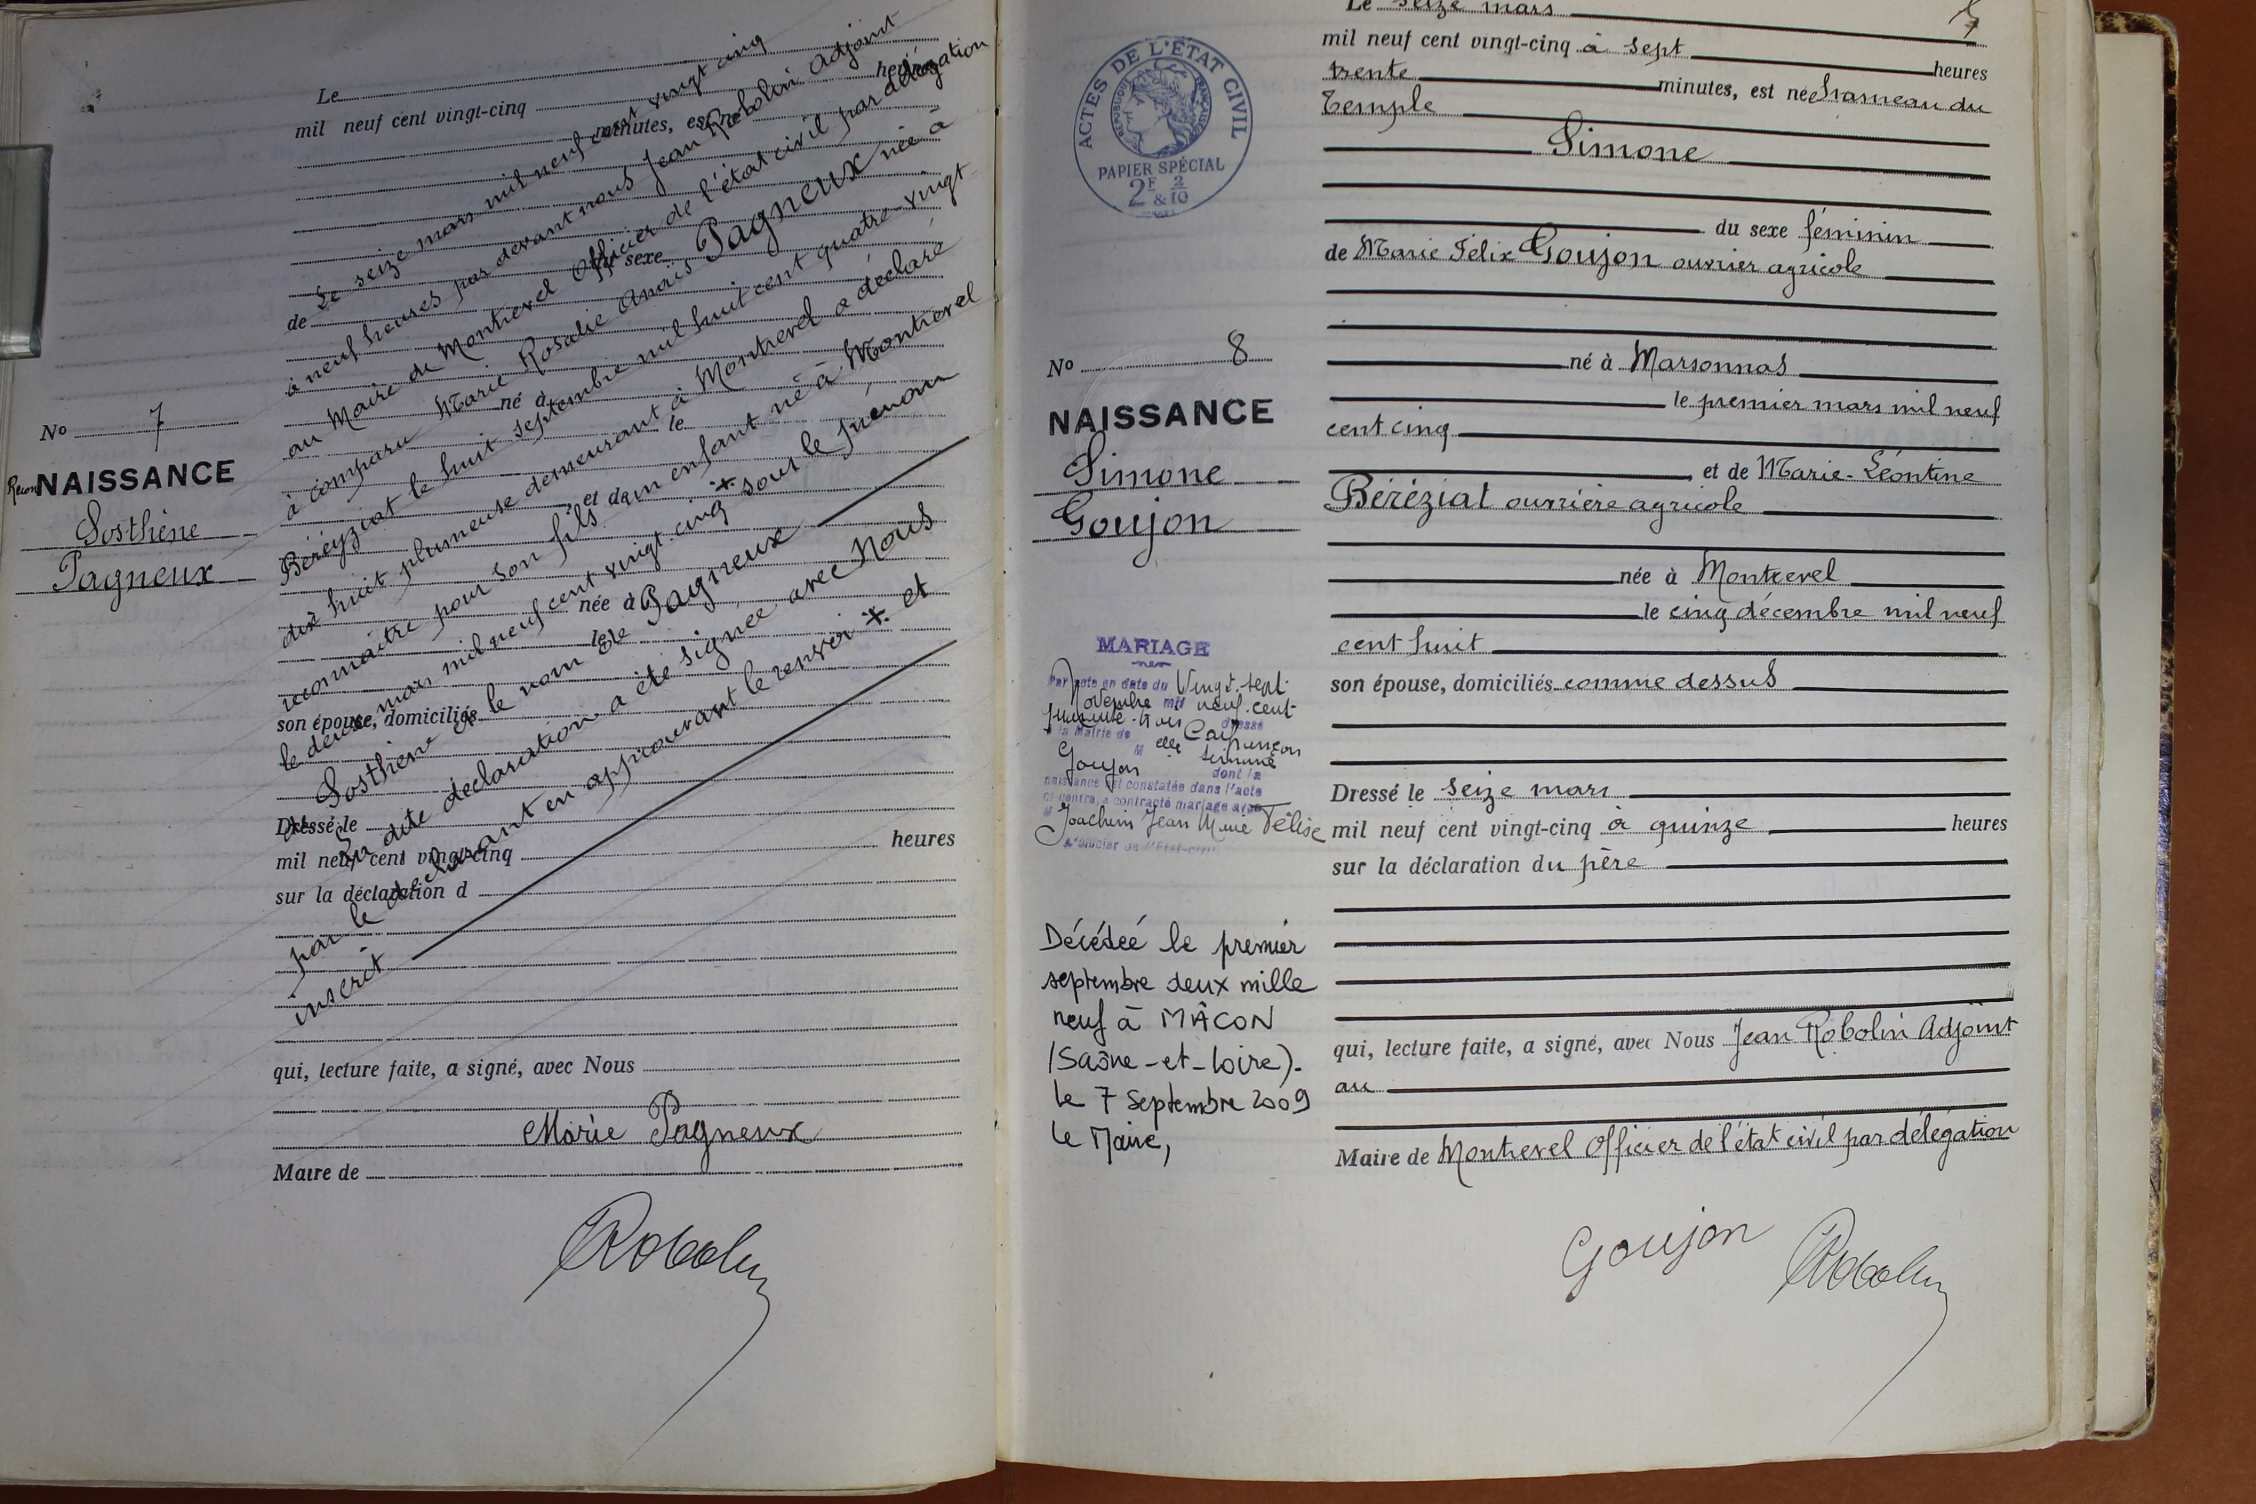 Le
mil neuf cent vingt-cinq heures
minutes, est né
du sexe
de
né à
le
et de
née à
le
son épouse, domiciliés
Dressé le
mil neuf cent vingt-cinq heures
sur la déclaration d
qui, lecture faite, a signé, avec Nous
Maire de
No 7
Recon NAISSANCE
Sosthène
Pagneux
Le seize mars mil neuf cent vingt cinq
à neuf heures par devant nous Jean Robolin Adjoint
au Maire de Montrevel Officier de l'état civil par délégation
à comparu Marie Rosalie Anaïs Pagneux née à
Béréyziat le huit septembre mil huit cent quatre-vingt
dix huit plumeuse demeurant à Montrevel a déclaré
reconnaître pour son fils un enfant né à Montrevel
le deux mars mil neuf cent vingt cinq * sous le prénom
* Sosthène et le nom de Pagneux
La dite déclaration a été signée avec Nous
par le déclarant en approuvant le renvoi * et
inscrit
Marie Pagneux
Robolin
Le seize mars
mil neuf cent vingt-cinq à sept heures
trente minutes, est née hameau du
Temple
Simone
du sexe féminin
de Marie Félix Goujon ouvrier agricole
né à Marsonnas
le premier mars mil neuf
cent cinq
et de Marie-Léontine
Béréziat ouvrière agricole
née à Montrevel
le cinq décembre mil neuf
cent huit
son épouse, domiciliés comme dessus
Dressé le seize mars
mil neuf cent vingt-cinq à quinze heures
sur la déclaration du père
qui, lecture faite, a signé, avec Nous Jean Robolin Adjoint
au
Maire de Montrevel Officier de l'état civil par délégation
Goujon Robolin
ACTES DE L'ÉTAT CIVIL
RÉPUBLIQUE FRANÇAISE
PAPIER SPÉCIAL
2F & 2/10
No 8
NAISSANCE
Simone
Goujon
MARIAGE
Par acte en date du Vingt-sept
Novembre mil neuf-cent
dressé
à la Mairie de
Melle Simone
Goujon dont la
naissance est constatée dans l'acte
ci-contre, a contracté mariage avec
Joachim Jean Marie Félise
L'Officier de l'État-civil
Décédée le premier
septembre deux mille
neuf à MÂCON
(Saône-et-Loire).
le 7 Septembre 2009
le Maire,